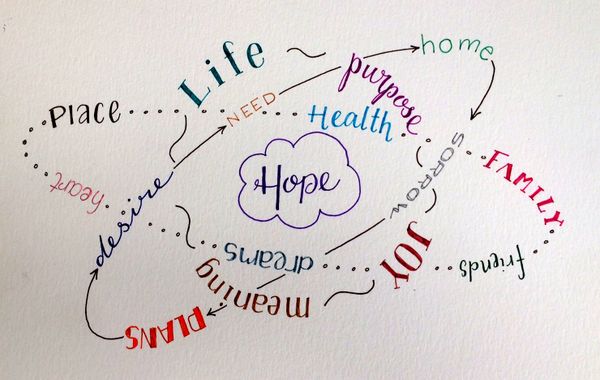 Life
home
purpose
NEED
Place
Health
SORROW
FAMILY
Hope
heart
desire
JOY
dreams
friends
meaning
PLANS